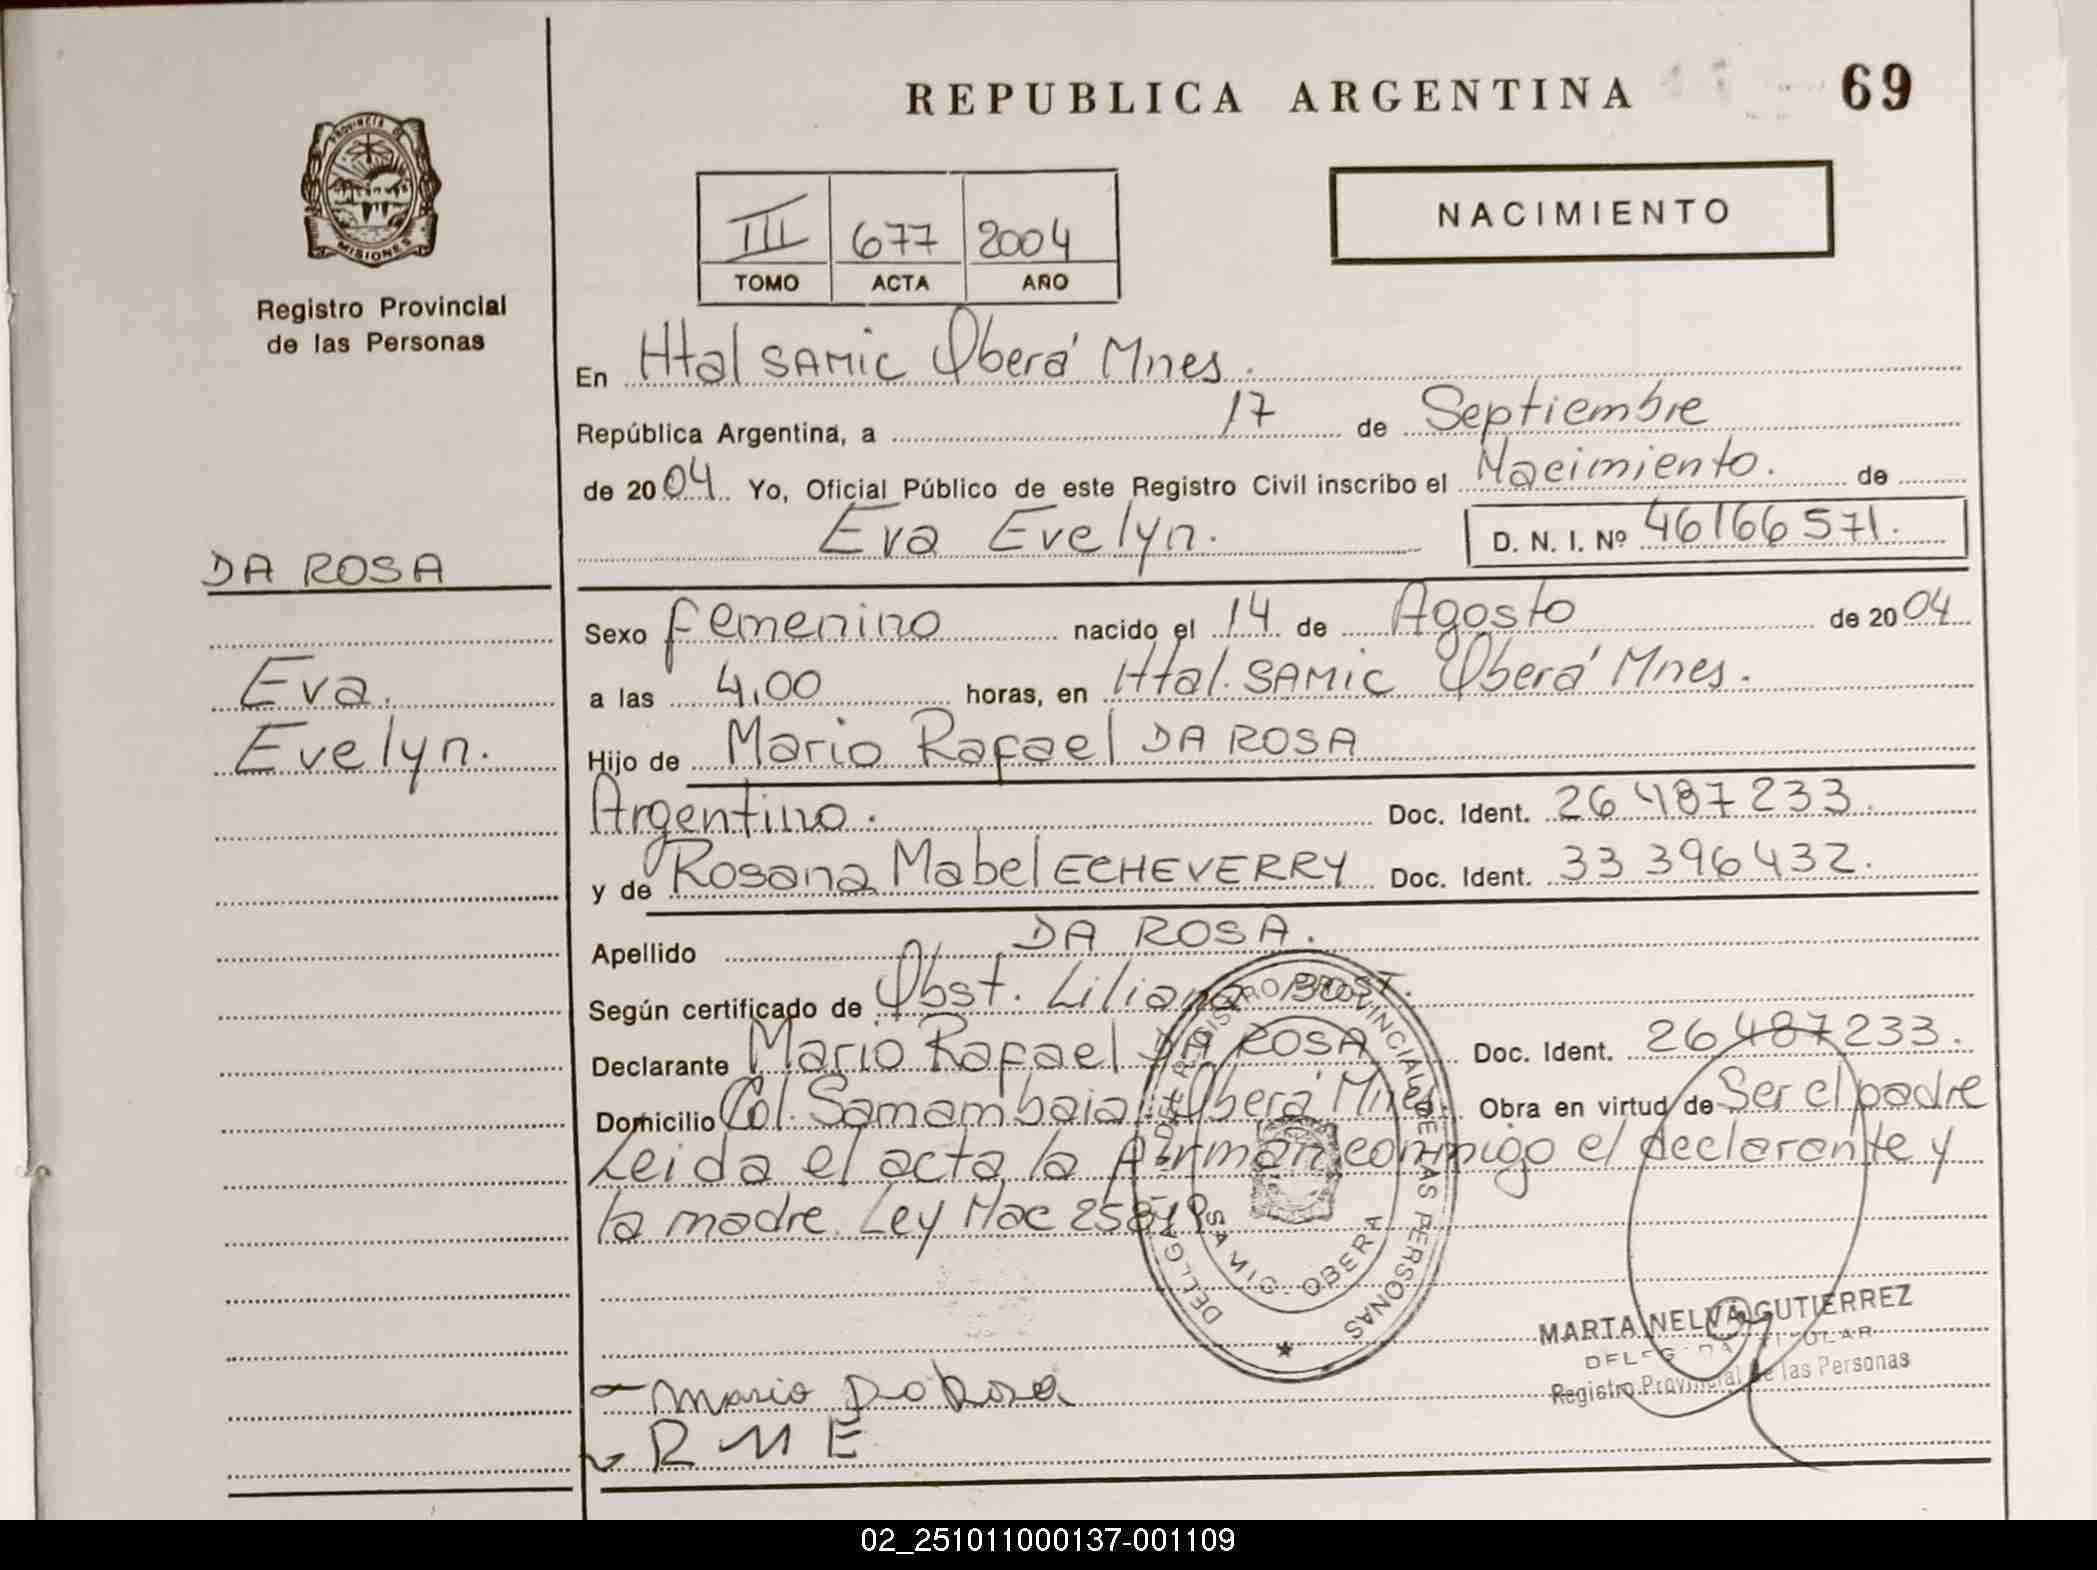 REPUBLICA ARGENTINA
69
PROVINCIA DE
MISIONES
Registro Provincial
de las Personas
III 677 2004
TOMO ACTA AÑO
NACIMIENTO
En Htal SAMIC Oberá Mnes.
República Argentina, a 17 de Septiembre
de 2004. Yo, Oficial Público de este Registro Civil inscribo el Nacimiento. de
Eva Evelyn.
D. N. I. Nº 46166571.
DA ROSA
Eva.
Evelyn.
Sexo femenino nacido el 14 de Agosto de 2004
a las 4,00 horas, en Htal. SAMIC Oberá Mnes.
Hijo de Mario Rafael DA ROSA
Argentino. Doc. Ident. 26 487 233.
y de Rosana Mabel ECHEVERRY Doc. Ident. 33 396 432.
Apellido DA ROSA.
Según certificado de Obst. Liliana BOST.
Declarante Mario Rafael DA ROSA Doc. Ident. 26 487 233.
Domicilio Col. Samambaia Oberá Mnes. Obra en virtud de Ser el padre
Leida el acta la firman conmigo el declarante y
la madre. Ley Nac 25819
REGISTRO PROVINCIAL DE LAS PERSONAS
SAMIC OBERA
MARTA NELVA GUTIERREZ
Registro Provincial de las Personas
Mario Da Rosa
R M E
02_251011000137-001109